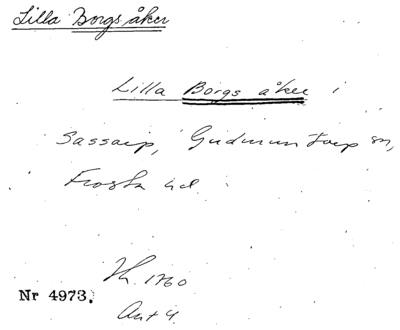 Lilla Borgs åker
Lilla Borgs åker i
Sassarp, Gudmuntorp sn,
Frosta hd.
Th. 1760
Nr 4973.
Akt 4.